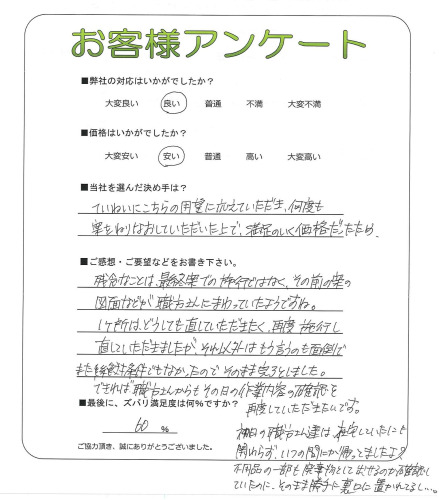 お客様アンケート
■弊社の対応はいかがでしたか?
大変良い 良い 普通 不満 大変不満
■価格はいかがでしたか?
大変安い 安い 普通 高い 大変高い
■当社を選んだ決め手は?
ていねいにこちらの用望に応えていただき、何度も
案をねりなおしていただいた上で、満足のいく価格だったため。
■ご感想・ご要望などをお書き下さい。
残念なことは、最終案での施行ではなく、その前の案の
図面などが職方さんにまわっていたようですね。
1ヶ所は、どうしても直していただきたく、再度施行し
直していただきましたが、それ以外はもう言うのも面倒で
また絶対条件でもなかったのでそのまま完了としました。
できれば職方さんからもその日の作業内容の確認を
再度していただきたいです。
■最後に、ズバリ満足度は何%ですか?
60 %
ご協力頂き、誠にありがとうございました。
初日の職方さん達は、在宅していたにも
関わらず、いつの間にか帰ってましたよ?
不用品の一部も廃棄物として出せるのか確認し
ていたのに、そのまま勝手に裏口に置かれてるし…。